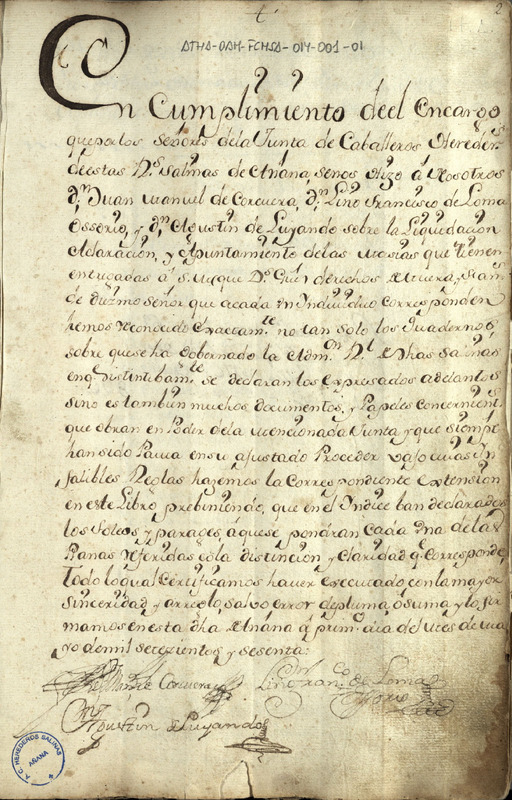 2
ATHA-DAH-FCHSA-014-001-01
En Cumplimiento deel Encargo
que por los Señores dela Junta de Caballeros Hereders
de estas Rs Salinas de Añana, senos Hizo á Nosotros
Dn Juan Manuel de Corcuera, Dn Lino Francisco de Loma
Ossorio, y Dn Agustin de Luyando sobre la Liquidacion
Aclaracion, y Apuntamiento delas que tienen
entregadas á S. M. que Ds Gue derechos de Muera, y
de diezmo señor que acada un Individuo corresponden
hemos reconocido Exactamte no tan solo los Quadernos
sobre que se ha Gobernado la Admon Rl de dhas Salinas
en q. distintibamte se declaran los expresados adelantos
sino es tambien muchos documentos, y Papeles Concernients
que obran en Poder dela mencionada Junta y que siempre
han sido Pauta en su ajustado Proceder vajo cuias In
falibles Reglas hazemos la Correspondiente extension
en este Libro prebiniendo, que en el Indice ban declarados
los Soteos, y parages, áque se pondran Cada Una de las
Planas referidas có la distincion y Claridad q. Corresponde,
Todo lo qual Certificamos haver executado con la mayor
sinceridad y arreglo, salvo error de pluma, ó suma y lo fir
mamos en esta dha de Añana á primo dia del mes de Ma
yo de mil setezientos y sesenta:
Corcuera
Lino Franco de Loma
Ossorio
Agustin de Luyando
A.C. HEREDEROS SALINAS
AÑANA